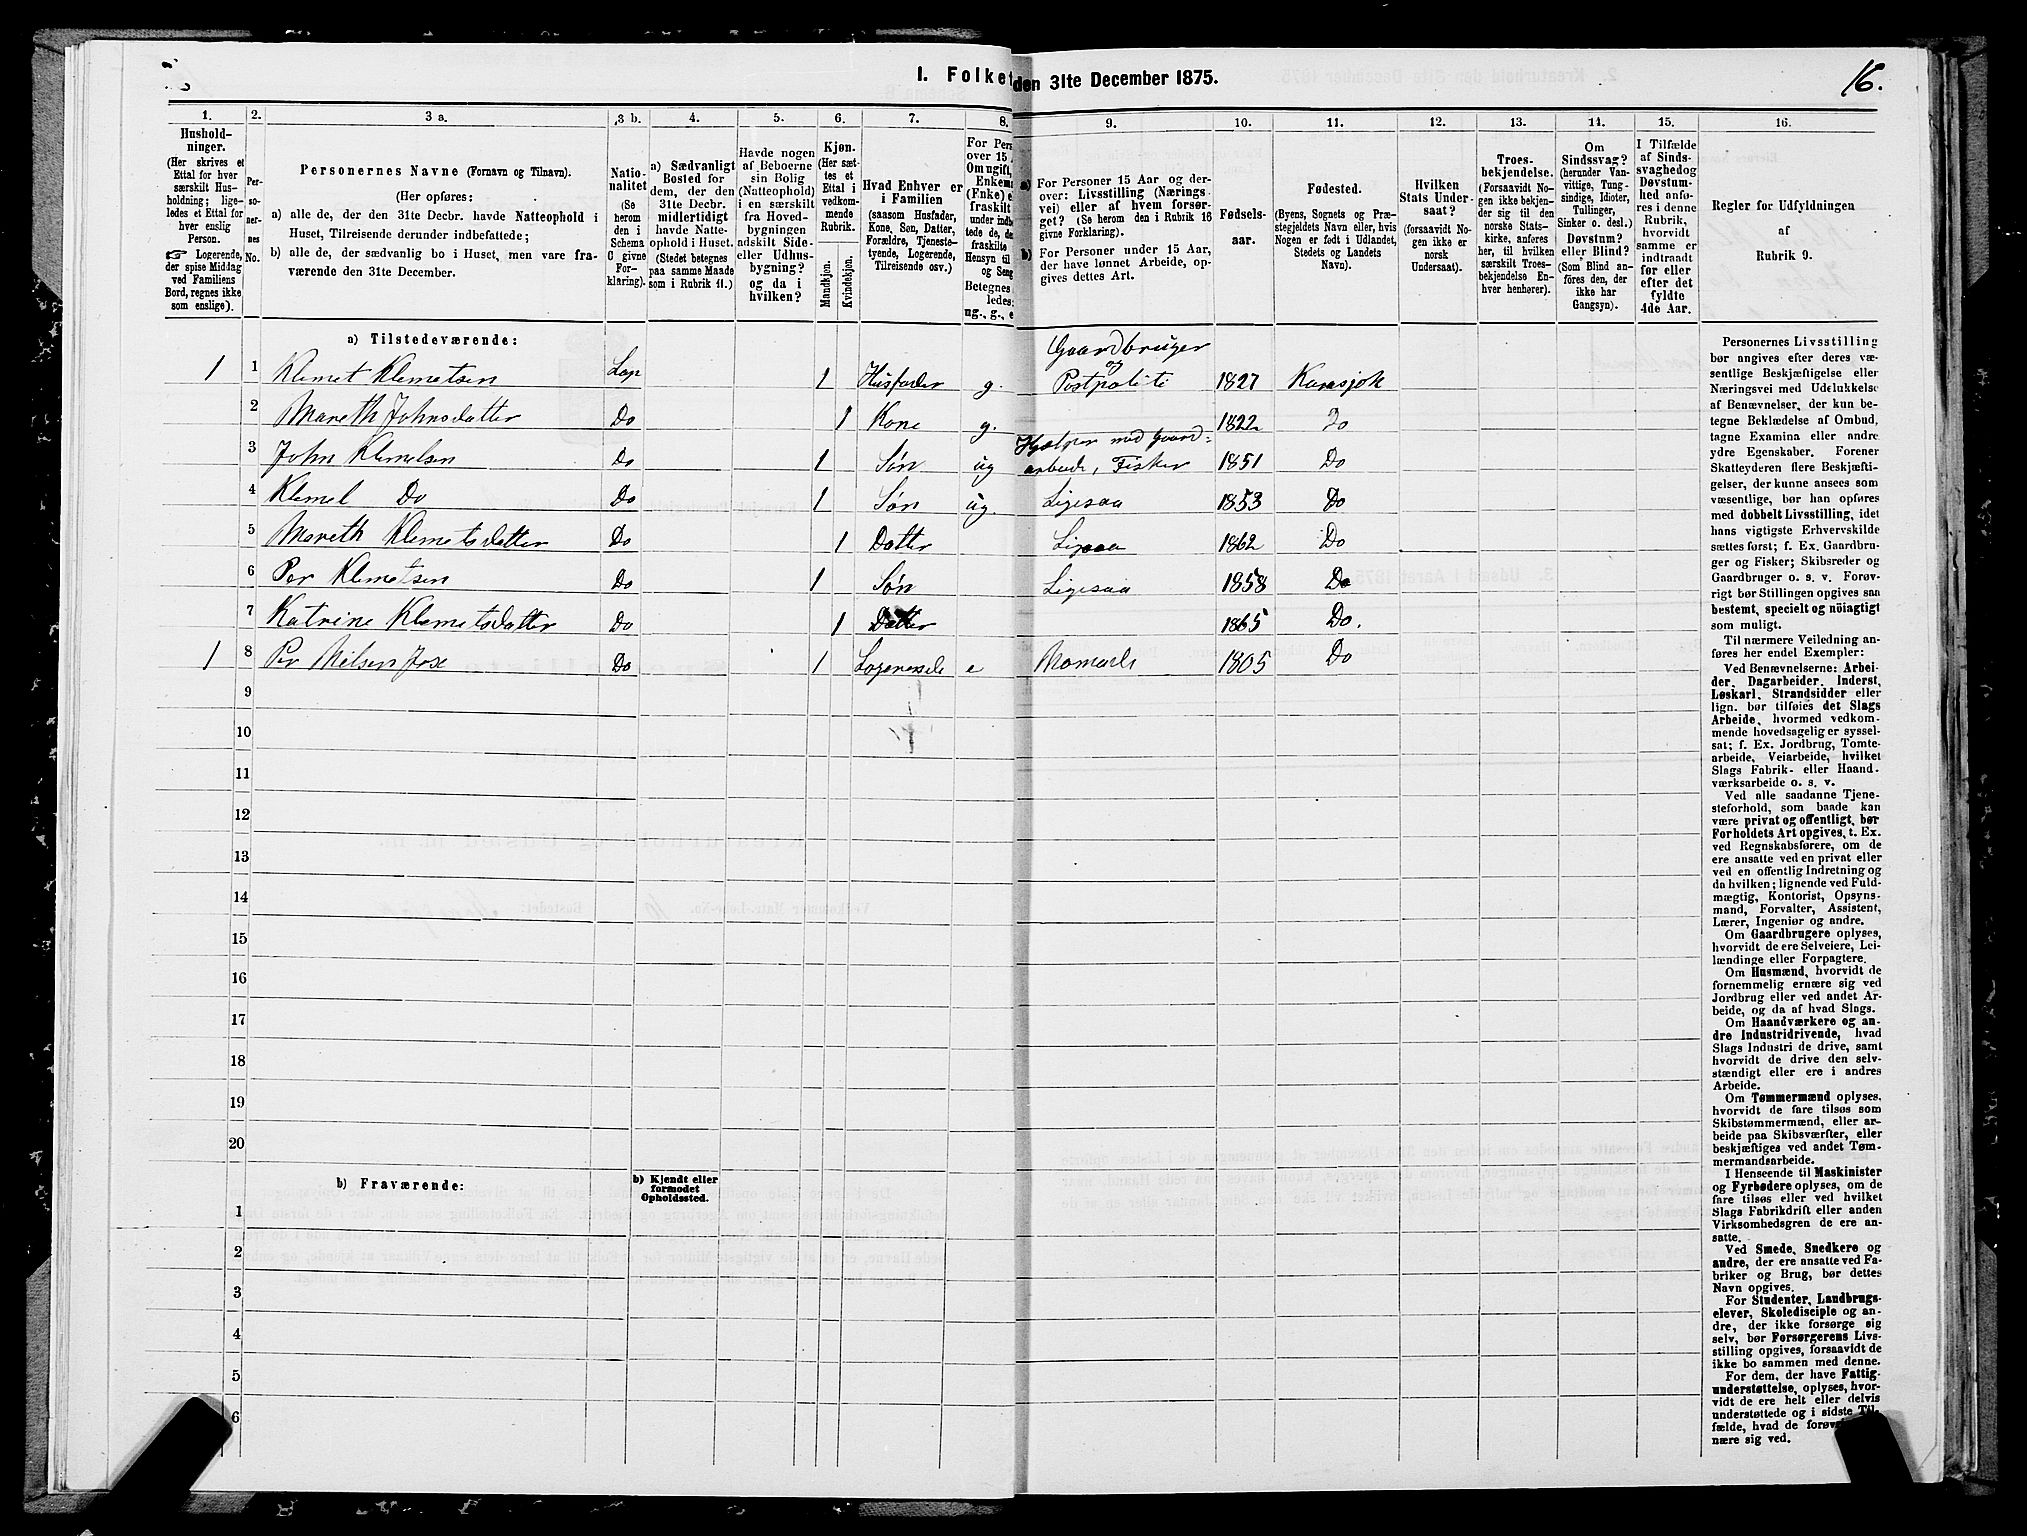 I. Folket den 31te December 1875.
16.
1. 2. 3 a. 3 b. 4. 5. 6. 7. 8. 9. 10. 11. 12. 13. 14. 15. 16.
Hushold-
ninger.
(Her skrives et
Ettal for hver
særskilt Hus-
holdning; lige-
ledes et Ettal for
hver enslig
Person.
☞ Logerende,
der spise Middag
ved Familiens
Bord, regnes ikke
som enslige).
Per-
so-
ner-
nes
No.
Personernes Navne (Fornavn og Tilnavn).
(Her opføres:
a) alle de, der den 31te Decbr. havde Natteophold i
Huset, Tilreisende derunder indbefattede;
b) alle de, der sædvanlig bo i Huset, men vare fra-
værende den 31te December.
Natio-
nalitet
(Se
herom
den i
Schema
C givne
For-
klaring).
a) Sædvanligt
Bosted for
dem, der den
31te Decbr.
midlertidigt
havde Natte-
ophold i Huset.
(Stedet betegnes
paa samme Maade
som i Rubrik 11.)
Havde nogen
af Beboerne
sin Bolig
(Natteophold)
i en særskilt
fra Hoved-
bygningen
adskilt Side-
eller Udhus-
bygning?
og da i
hvilken?
Kjøn.
(Her sæt-
tes et
Ettal i
vedkom-
mende
Rubrik.
Mandkjøn.
Kvindekjøn.
Hvad Enhver er
i Familien
(saasom Husfader,
Kone, Søn, Datter,
Forældre, Tjeneste-
tyende, Logerende,
Tilreisende osv.)
For Pers
over 15 A
Om ugift,
Enkem
(Enke) e
fraskilt
under indb
tede de, de
fraskilte
Hensyn til
og Seng
Betegnes
ledes:
ug., g., e
a) For Personer 15 Aar og der-
over: Livsstilling (Nærings-
vei) eller af hvem forsør-
get? (Se herom den i Rubrik 16
givne Forklaring).
b) For Personer under 15 Aar,
der have lønnet Arbeide, op-
gives dettes Art.
Fødsels-
aar.
Fødested.
(Byens, Sognets og Præ-
stegjeldets Navn eller, hvis
Nogen er født i Udlandet,
Stedets og Landets
Navn).
Hvilken
Stats Under-
saat?
(forsaavidt No-
gen ikke er
norsk
Undersaat).
Troes-
bekjendelse.
(Forsaavidt No-
gen ikke bekjen-
der sig til den
norske Stats-
kirke, anføres
her, til hvilken
særskilt Troes-
bekjendelse En-
hver henhører).
Om
Sindssvag?
(herunder Van-
vittige, Tung-
sindige, Idioter,
Tullinger,
Sinker o. desl.)
Døvstum?
eller Blind?
(Som Blind an-
føres den, der
ikke har
Gangsyn).
I Tilfælde
af Sinds-
svaghed og
Døvstum-
hed anfø-
res i denne
Rubrik,
hvorvidt
samme er
indtraadt
før eller
efter det
fyldte
4de Aar.
Regler for Udfyldningen
af
Rubrik 9.
a) Tilstedeværende:
1 1 Klemet Klemetsen Lap 1 Husfader g. Gaardbruger og Postpoliti 1827 Karasjok
2 Mareth Johnsdatter Do 1 Kone g. 1822 Do
3 John Klemetsen Do 1 Søn ug Hjælper med Gaard-
arbeide, Fisker 1851 Do
4 Klemet Do Do 1 Søn ug. Ligesaa 1853 Do
5 Mareth Klemetsdatter Do 1 Datter Ligesaa 1862 Do
6 Per Klemetsen Do 1 Søn Ligesaa 1858 Do
7 Katrine Klemetsdatter Do 1 Datter 1865 Do.
1 8 Per Nilsen Do 1 Logerende e 1805 Do
9
10
11
12
13
14
15
16
17
18
19
20
b) Fraværende:
b) Kjendt eller
formodet
Opholdssted.
1
2
3
4
5
6
Personernes Livsstilling
bør angives efter deres væ-
sentlige Beskjæftigelse eller
Næringsvei med Udelukkelse
af Benævnelser, der kun be-
tegne Beklædelse af Ombud,
tagne Examina eller andre
ydre Egenskaber. Forener
Skatteyderen flere Beskjæfti-
gelser, der kunne ansees som
væsentlige, bør han opføres
med dobbelt Livsstilling, idet
hans vigtigste Erhvervskilde
sættes først; f. Ex. Gaardbru-
ger og Fisker; Skibsreder og
Gaardbruger o. s. v. Forøv-
rigt bør Stillingen opgives saa
bestemt, specielt og nöiagtigt
som muligt.
Til nærmere Veiledning an-
føres her endel Exempler:
Ved Benævnelserne: Arbei-
der, Dagarbeider, Inderst,
Løskarl, Strandsidder eller
lign. bør tilføies det Slags
Arbeide, hvormed vedkom-
mende hovedsagelig er syssel-
sat; f. Ex. Jordbrug, Tomte-
arbeide, Veiarbeide, hvilket
Slags Fabrik- eller Haand-
værksarbeide o. s. v.
Ved alle saadanne Tjene-
steforhold, som baade kan
være privat og offentligt, bør
Forholdets Art opgives, t. Ex.
ved Regnskabsførere, om de
ere ansatte ved en privat eller
ved en offentlig Indretning og
da hvilken; lignende ved Fuld-
mægtig, Kontorist, Opsyns-
mand, Forvalter, Assistent,
Lærer, Ingeniør og andre.
Om Gaardbrugere oplyses,
hvorvidt de ere Selveiere, Lei-
lændinge eller Forpagtere.
Om Husmænd, hvorvidt de
fornemmelig ernære sig ved
Jordbrug eller ved andet Ar-
beide, og da af hvad Slags.
Om Haandværkere og an-
dre Industridrivende, hvad
Slags Industri de drive, samt
hvorvidt de drive den selv-
stændigt eller ere i andres
Arbeide.
Om Tømmermænd oplyses,
hvorvidt de fare tilsøs som
Skibstømmermænd, eller ar-
beide paa Skibsværfter, eller
beskjæftiges ved andet Tøm-
mermandsarbeide.
I Henseende til Maskinister
og Fyrbødere oplyses, om de
fare tilsøs eller ved hvilket
Slags Fabrikdrift eller anden
Virksomhedsgren de ere an-
satte.
Ved Smede, Snedkere og
andre, der ere ansatte ved Fa-
briker og Brug, bør dettes
Navn opgives.
For Studenter, Landbrugs-
elever, Skoledisciple og an-
dre, der ikke forsørge sig
selv, bør Forsørgerens Livs-
stilling opgives, forsaavidt de
ikke bo sammen med denne.
For dem, der have Fattig-
understøttelse, oplyses, hvor-
vidt de ere helt eller delvis
understøttede og i sidste Til-
fælde, hvad de forøvr
nære sig ved.